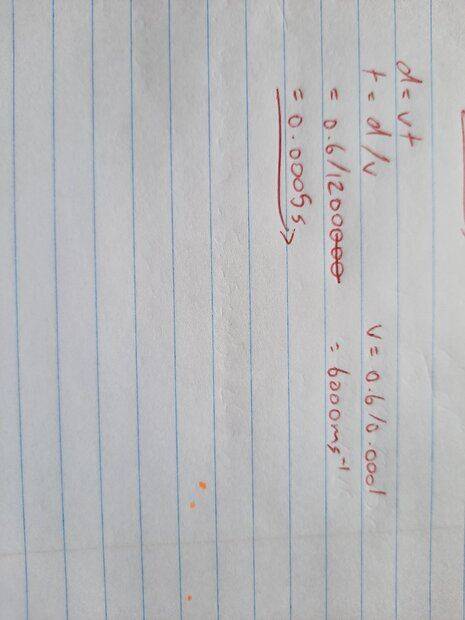 d = vt
t = d/v
= 0.6/1200
= 0.0005s
v = 0.6/0.0001
= 6000ms⁻¹